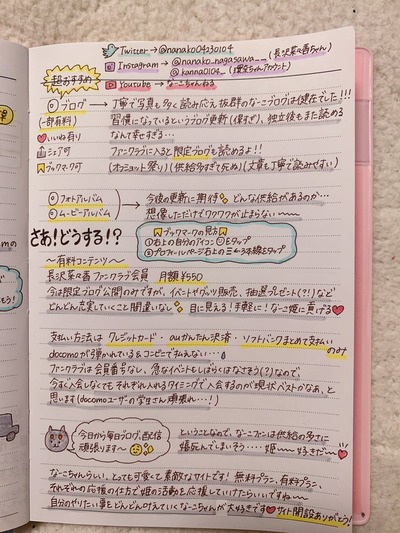 Twitter→@nanako04230104
Instagram→@nanako_nagasawa__（長沢菜々香ちゃん）
@kanna0104_（理佐ちゃんアカウント）
Youtube→なーこちゃんねる
超おすすめ
◎ブログ→丁寧で写真も多く読み応え抜群のなーこブログは健在でした!!!
（一部有料） 習慣になっているというブログ更新（偉すぎ）、独立後もまた読める
♡いいね有り なんて幸せすぎる…
シェア可 ファンクラブに入ると限定ブログも読めるよ!!
ブックマーク可 （オフショット祭り）（供給多すぎて死ぬ）（文章も丁寧で読みやすい）
◎フォトアルバム
◎ムービーアルバム
→今後の更新に期待 どんな供給があるのか…
想像しただけでワクワクが止まらない〜〜
さあ!どうする!?
ブックマークの見方
①右上の自分のアイコンをタップ
②プロフィールページ右上の三←3本線をタップ
〜有料コンテンツ〜
長沢菜々香ファンクラブ会員 月額¥550
今は限定ブログ公開のみですが、イベントやグッツ販売、抽選プレゼント(?)など
どんどん充実していくこと間違いなし 目に見える!手軽に!なーこ姫に貢げる♥
支払い方法は クレジットカード・auかんたん決済・ソフトバンクまとめて支払いのみ
docomoが弾かれている&コンビニで払えない…
ファンクラブは会員番号なし、急なイベントもしばらくはなさそう(?)なので、
今すぐ入会しなくてもそれぞれ入れるタイミングで入会するのが現状ベストかなぁ、と
思います（docomoユーザの学生さん頑張れ…!）
今日から毎日ブログ、配信
頑張ります〜
ということなので、なーこファンは供給の多さに
爆死してしまいそう…姫〜好きだ〜♥
なーこちゃんらしい、とっても可愛くて素敵なサイトです!無料プラン、有料プラン、
それぞれの応援の仕方で姫の活動を応援していけたらいいですね〜
自分のやりたい事をどんどん叶えていくなーこちゃんが大好きです♥サイト開設ありがとう!